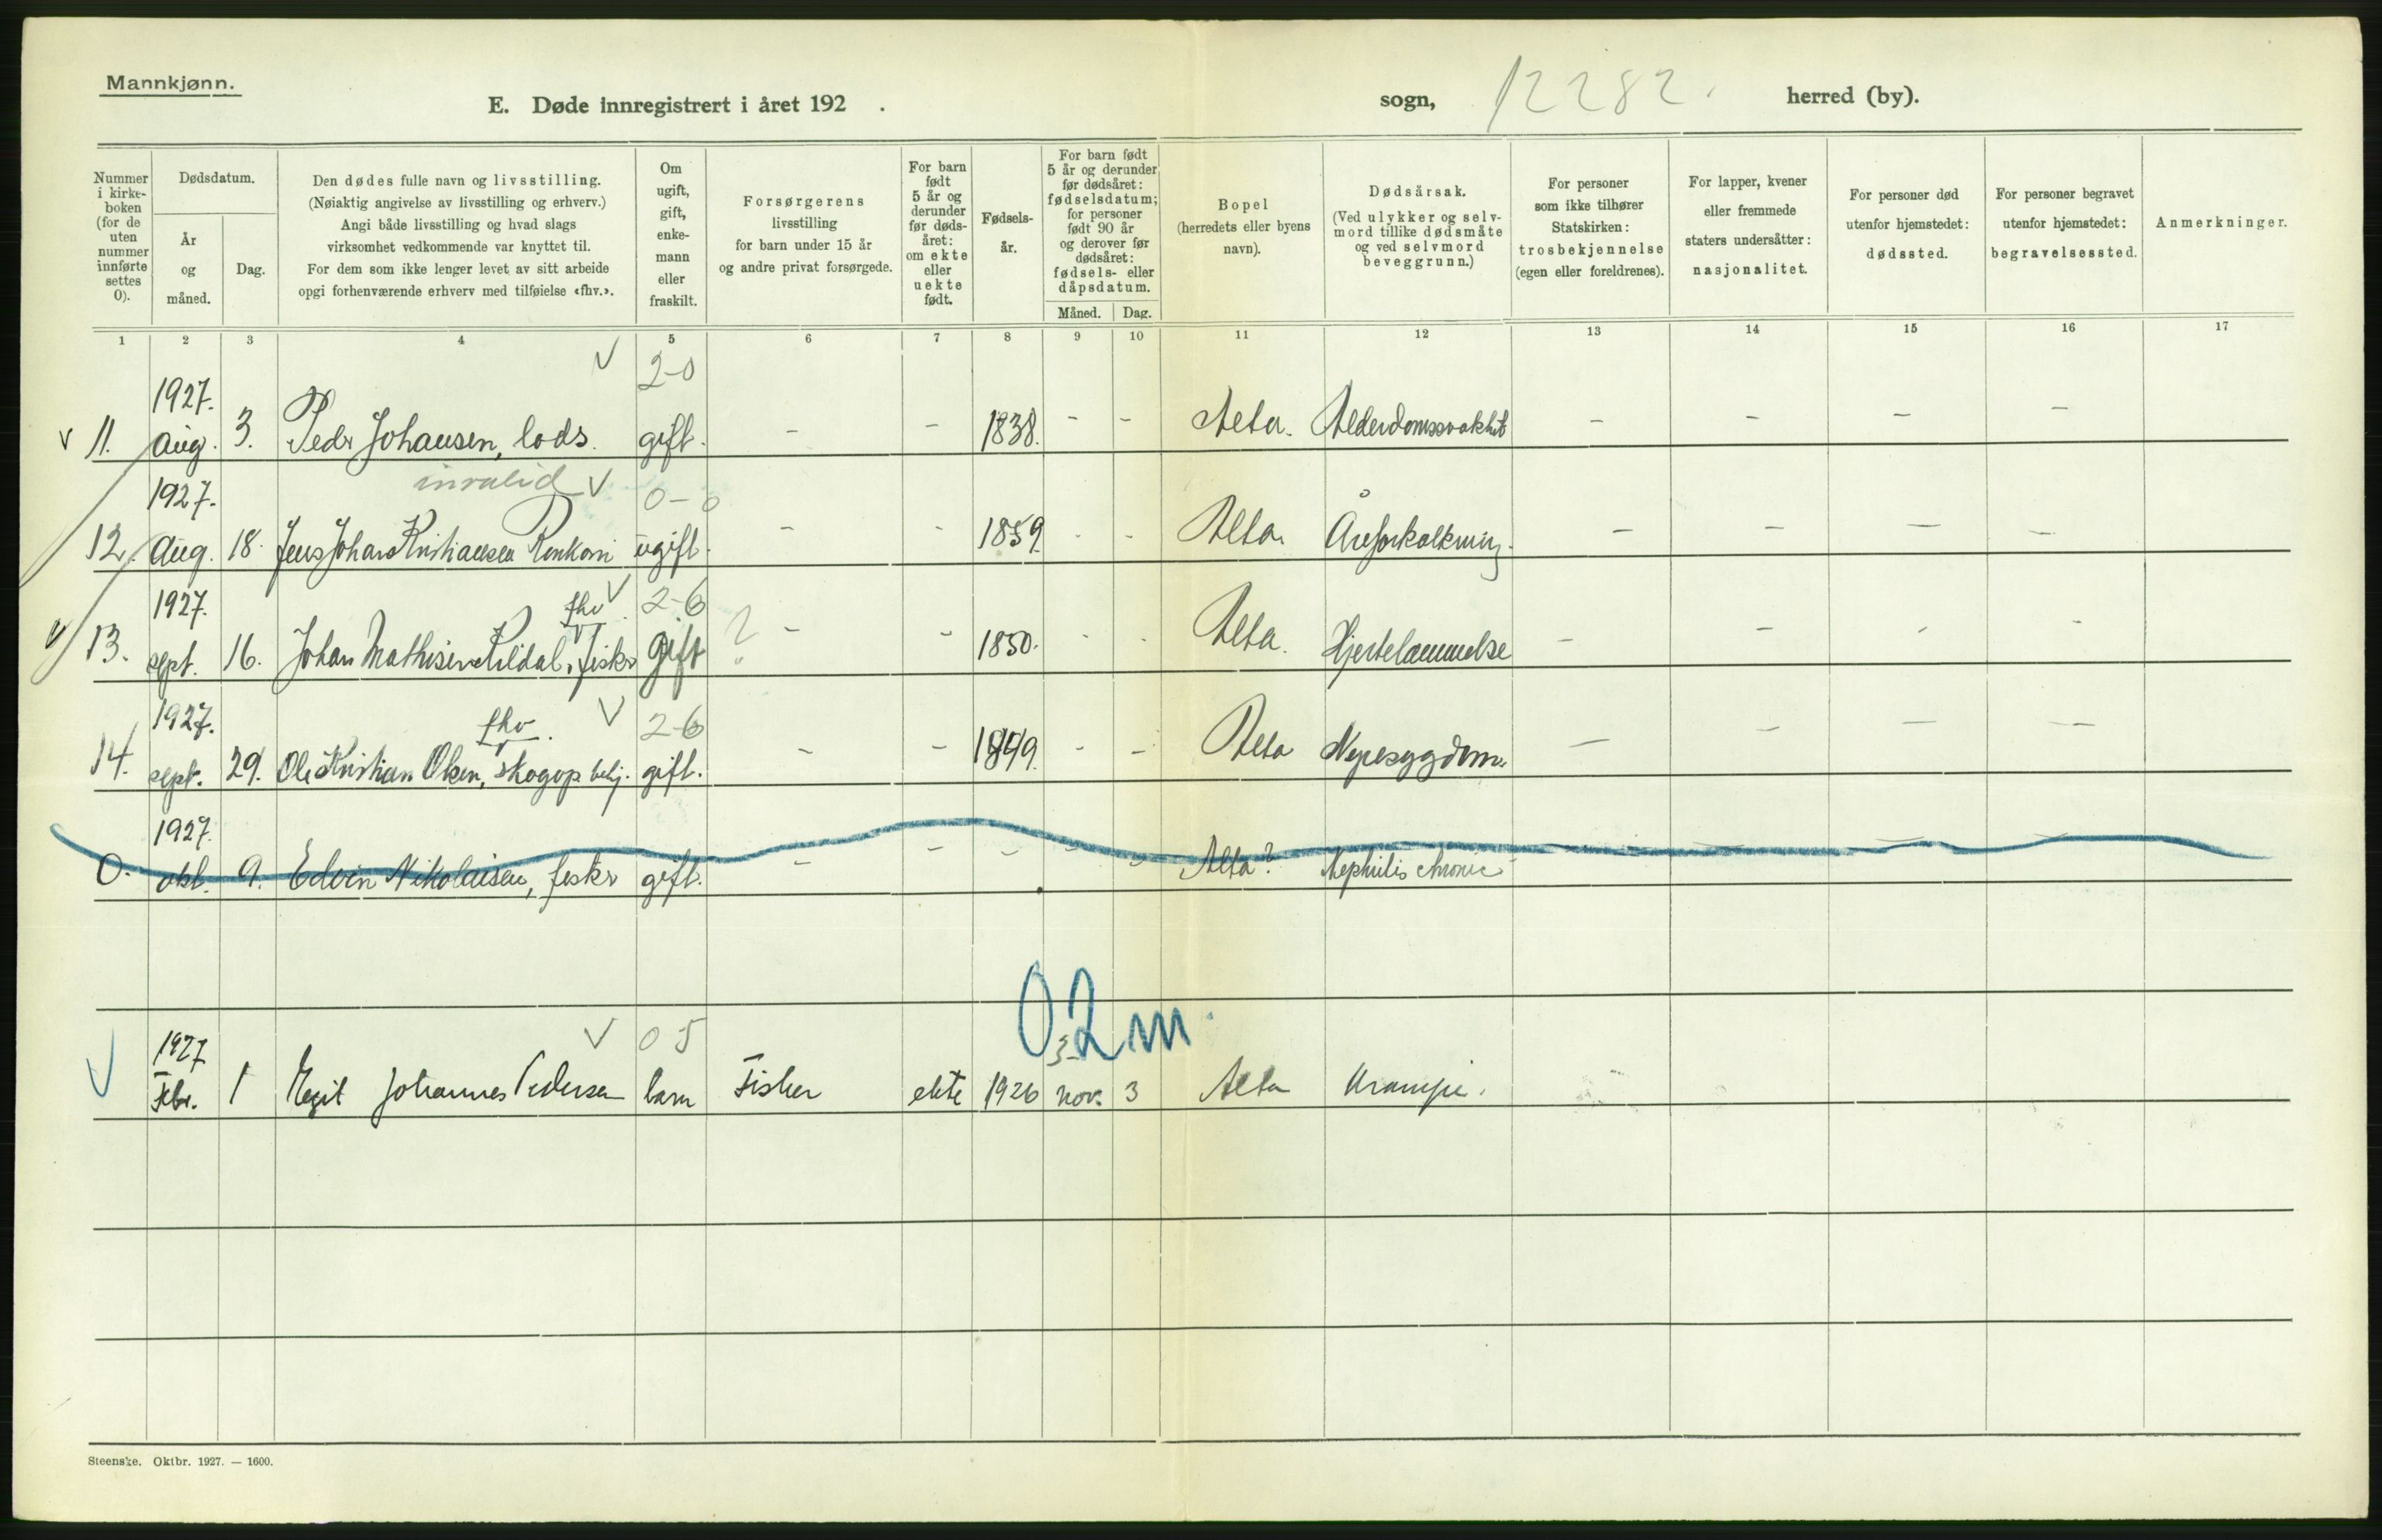 Mannkjønn.
E. Døde innregistrert i året 192 .
sogn, 12282. herred (by).
Nummer i kirke- boken (for de uten nummer innførte settes 0).
Dødsdatum.
År og måned.
Dag.
Den dødes fulle navn og livsstilling.
(Nøiaktig angivelse av livsstilling og erhverv.)
Angi både livsstilling og hvad slags
virksomhet vedkommende var knyttet til.
For dem som ikke lenger levet av sitt arbeide
opgi forhenværende erhverv med tilføielse «fhv.».
Om ugift, gift, enke- mann eller fraskilt.
Forsørgerens
livsstilling
for barn under 15 år
og andre privat forsørgede.
For barn født 5 år og derunder før døds- året: om ekte eller uekte født.
Fødsels- år.
For barn født 5 år og derunder før dødsåret: fødselsdatum; for personer født 90 år og derover før dødsåret: fødsels- eller dåpsdatum.
Måned. Dag.
Bopel
(herredets eller byens
navn).
Dødsårsak.
(Ved ulykker og selv-
mord tillike dødsmåte
og ved selvmord
beveggrunn.)
For personer
som ikke tilhører
Statskirken:
trosbekjennelse
(egen eller foreldrenes).
For lapper, kvener
eller fremmede
staters undersåtter:
nasjonalitet.
For personer død
utenfor hjemstedet:
dødssted.
For personer begravet
utenfor hjemstedet:
begravelsessted.
Anmerkninger.
1 2 3 4 5 6 7 8 9 10 11 12 13 14 15 16 17
1927. 2-0
11. Aug. 3. Peder Johansen, lods. gift. - - 1838. - - Alta. Alderdomssvakhet - - - -
1927. invalid 0-0
12. Aug. 18. Jens Johan Kristiansen ugift. - - 1859. - - Alta. Åreforkalkning. - - - -
1927. fhv. 2-6
13. sept. 16. Johan Mathisen fisker gift ? - - 1850. - - Alta. Hjertelammelse - - - -
1927. fhv. 2-6
14. sept. 29. Ole Kristian Olsen, skogop. betj. gift. - - 1849. - - Alta Nyresygdom. - - - -
1927.
0. okt. 9. Edvin Nikolaisen, fisker gift. - - - - - Alta? Nephritis chronic - - - -
0 2 m.
1927 0 5 3
Febr. 1 Johannes Pedersen barn Fisker ekte 1926 nov. 3 Alta Krampe.
Steenske. Oktbr. 1927. — 1600.